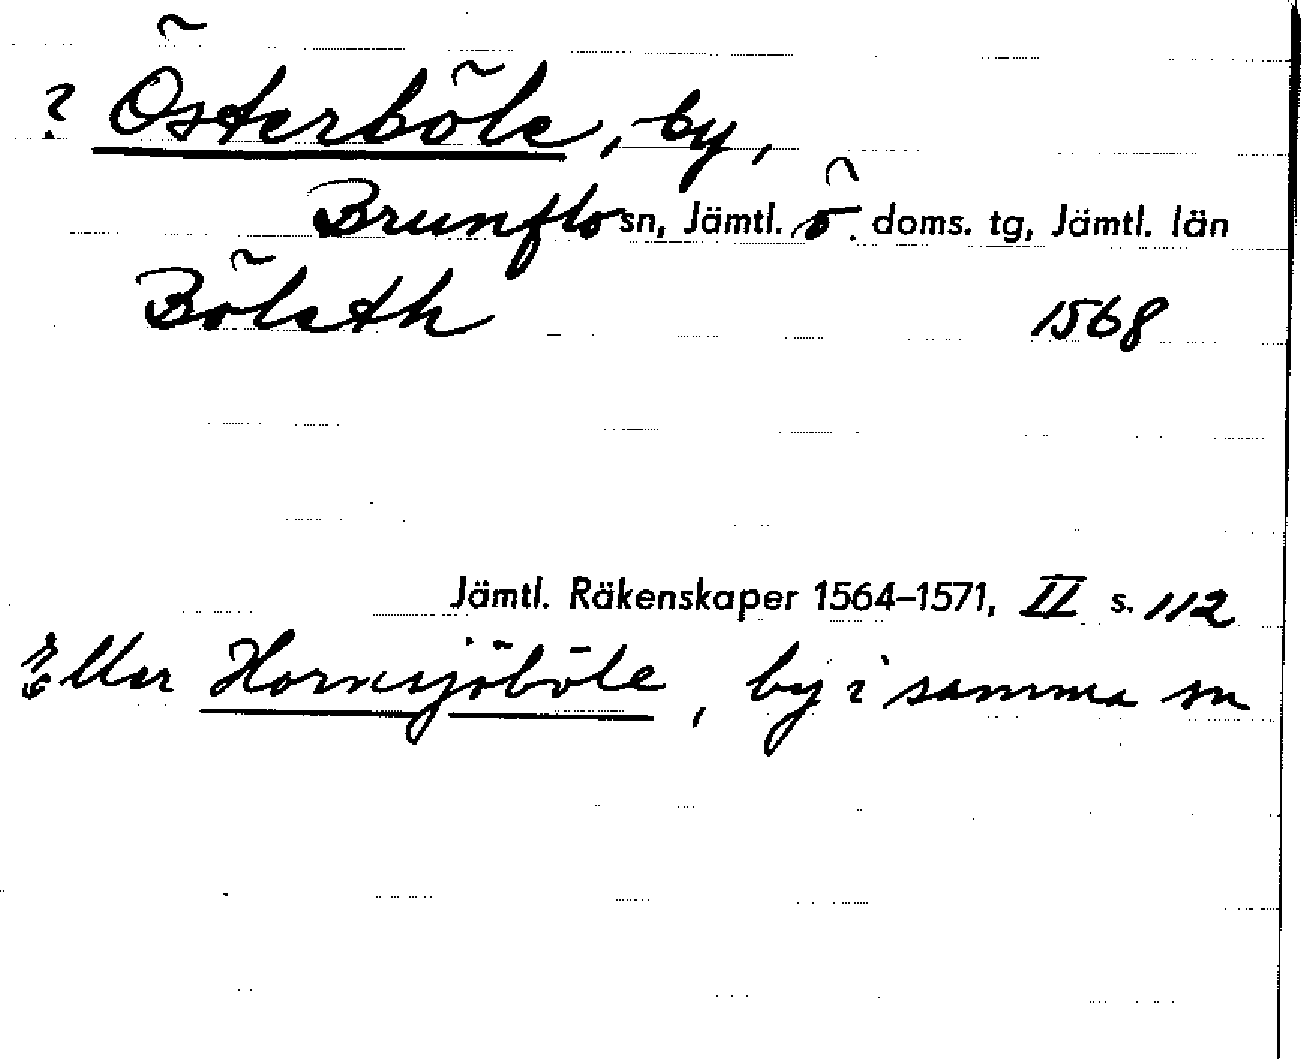 ? Österböle, by,
Brunflo sn, Jämtl. ö. doms. tg, Jämtl. län
Böleth 1568
Jämtl. Räkenskaper 1564–1571, II s. 112
Eller Hornsjöböle, by i samma sn